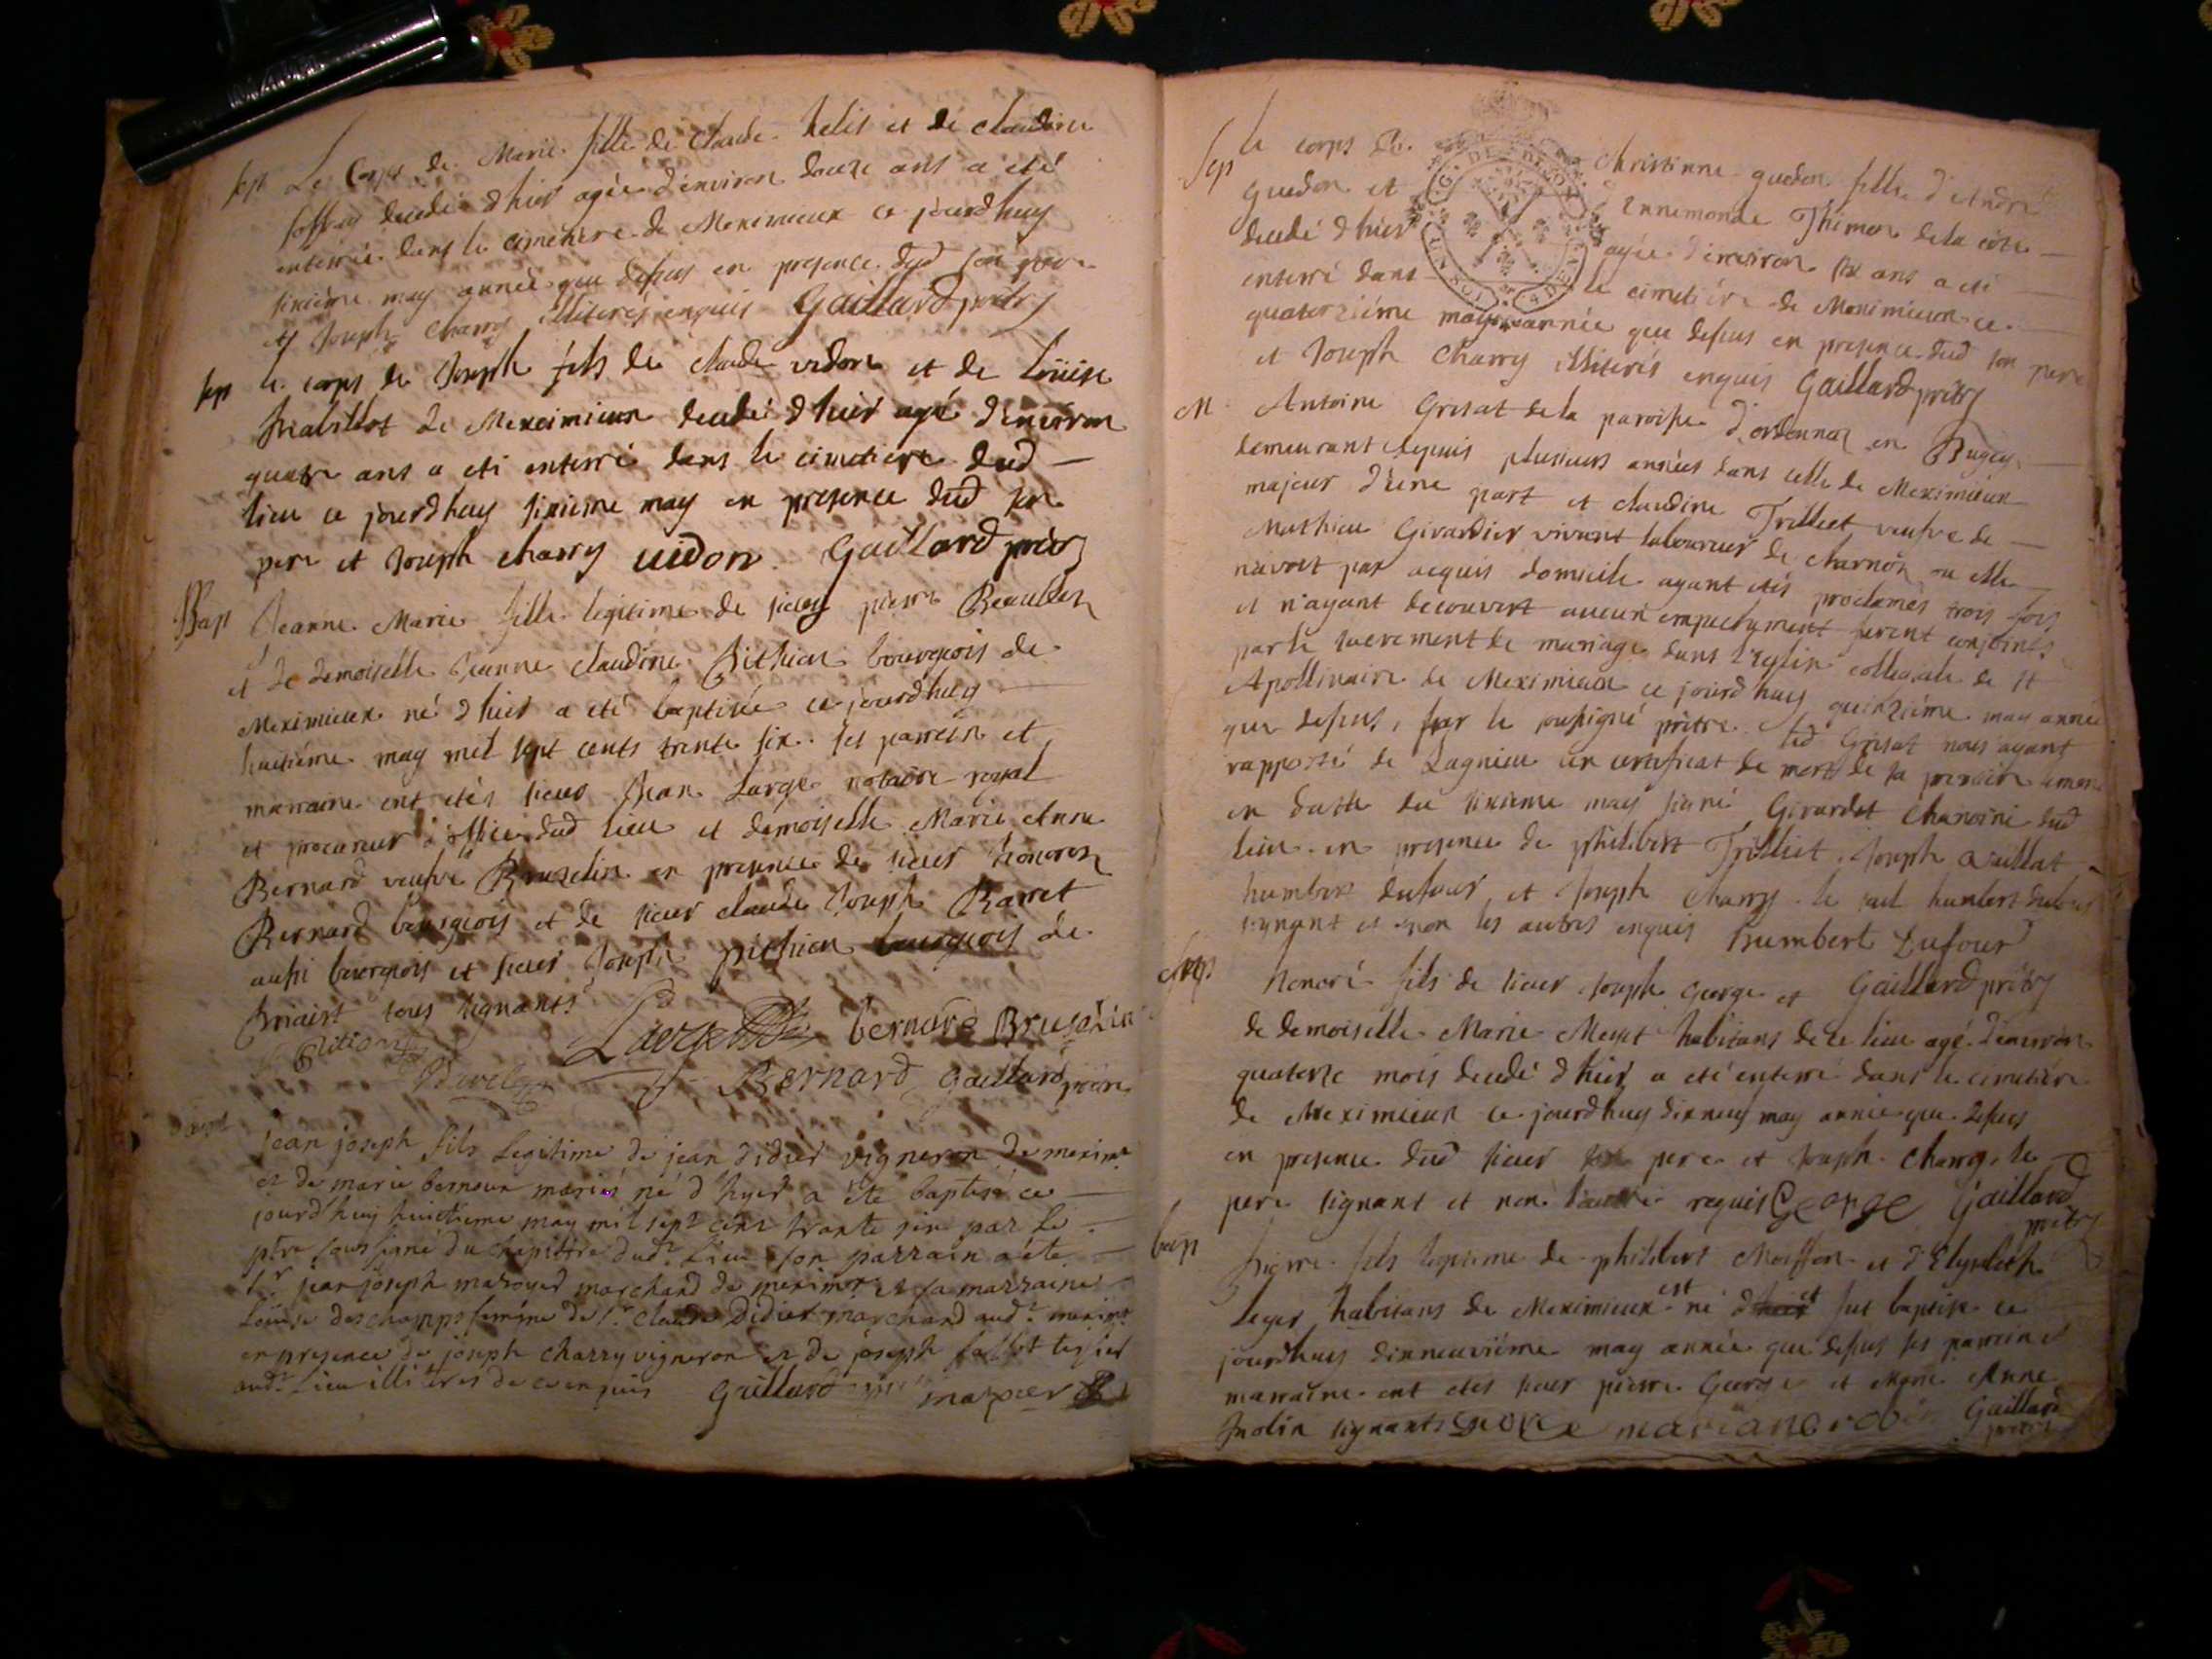 sep Le Corps de Marie fille de Claude helis et de claudine
decedée d'hier agée d'environ douze ans a eté
enterrée dans le cimetiere de Meximieux ce jourdhuy
sixième may année que dessus en presence dud son pere
et Joseph Charry illiterés enquis Gaillard prêtre
sep le corps de Joseph fils de claude vidon et de Loüise
de Meximieux decedé d'hier agé d'environ
quatre ans a eté enterré dans le cimetiere dud
lieu ce jourdhuy sixieme may en presence dud son
pere et Joseph charry vidon Gaillard prêtre
Bap Jeanne Marie fille legitime de sieur pierre
et de demoiselle Jeanne claudine Pithion bourgeois de
Meximieux né d'hier a eté baptisée ce jourdhuy
huitième may mil sept cents trente six. ses parrein et
marraine ont etés sieur Jean Large notaire royal
et procureur d'office dud lieu et demoiselle Marie Anne
Bernard veufve Bruzelin en presence de sieur honoré
Bernard bourgeois et de sieur claude Joseph
aussi bourgeois et sieur Joseph pithion bourgeois de
tous signants
Large bernard Bruzelin
Bernard Gaillard prêtre
jean joseph fils Legitime de jean didier vigneron de mexim.
et de marie mariés né d'hyer a été baptisé ce
jourd'huy huictieme may mil sept cent trante six par le
ptre soussigné du chapittre dud. Lieu son parrain a été
sr. jean joseph marchand de meximx et sa marraine
Louise deschamps femme de sr. Claude Didier marchand aud. mexim.
en presence de joseph charry vigneron et de joseph
aud. Lieu illiteres de ce enquis Gaillard
Sep le corps de Christinne guedon fille d'André
guedon et Ennemonde Thimon de la côte
decedé d'hier agée d'environ six ans a eté
enterré dans le cimetière de Meximieux ce
quatorzième may année que dessus en presence dud son pere
et Joseph Charry illiterés enquis Gaillard prêtre
M Antoine Grisat de la paroisse d'ordonnaz en Bugey
demeurant depuis plusieurs années dans celle de Meximieux
majeur d'une part et claudine Trilliet veufve de
Mathieu Girardier vivant laboureur de charnoz ou elle
n'avoit pas acquis domicile ayant etés proclamés trois fois
et n'ayant decouvert aucun empechement furent conjoints
par le sacrement de mariage dans l'Eglise collegiale de st
Apollinaire de Meximieux ce jourd'huy quinzième may année
que dessus, par le soussigné prêtre led Grisat nous ayant
rapporté de Lagnieu un certificat de mort de sa premiere femme
en datte du sixieme may signé Girardet Chanoine dud
lieu en presence de philibert Trilliet, Joseph
humbert dufour et Joseph Charry le seul humbert dufour
signant et non les autres enquis humbert Dufour
Gaillard prêtre
Sep honoré fils de sieur Joseph George et
de demoiselle Marie habitans de ce lieu agé d'environ
quatorze mois decedé d'hier a eté enterré dans le cimetière
de Meximieux ce jourdhuy dixneuf may année que dessus
en presence dud sieur son pere et Joseph Charry, le
pere signant et non l'autre requis George Gaillard
prêtre
bap Pierre fils legitime de philibert Moiffon et d'Elysabeth
Leger habitans de Meximieux est né d'hier et fut baptisé ce
jourdhuy dixneuvième may année que dessus ses parrein et
marraine ont etés sieur pierre George et Marie Anne
signants George Gaillard
prêtre